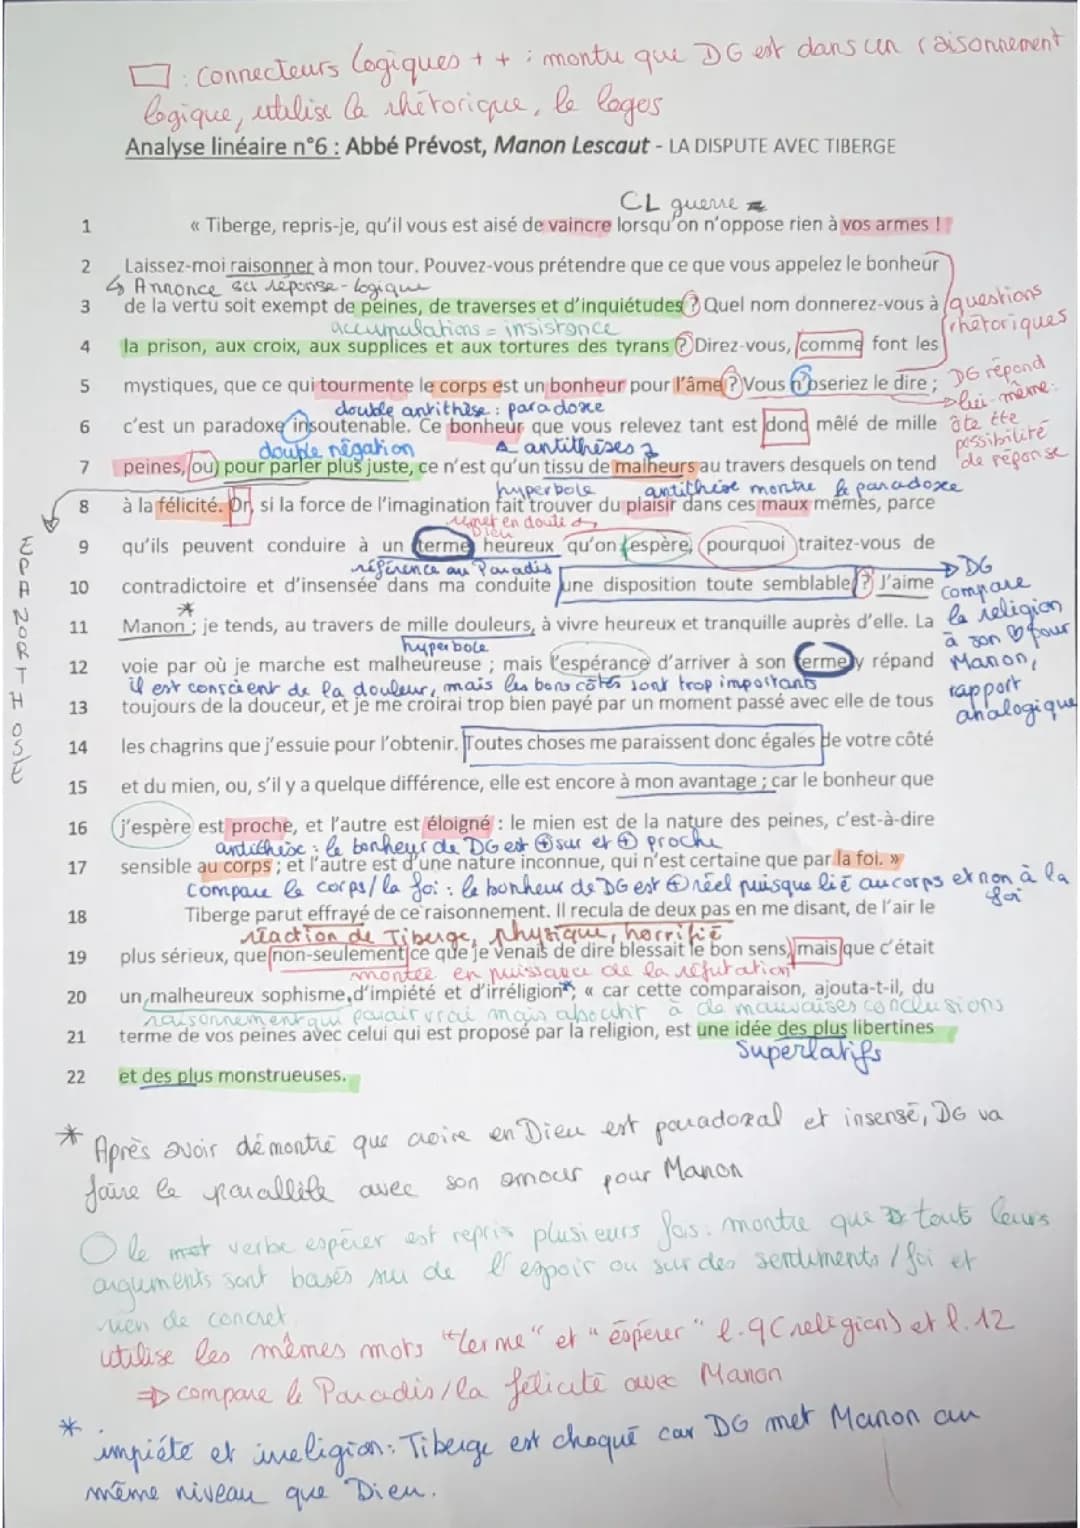 □ : Connecteurs logiques + + : montre que DG est dans un raisonnement
logique, utilise la rhétorique, le logos
Analyse linéaire n°6 : Abbé Prévost, Manon Lescaut - LA DISPUTE AVEC TIBERGE
CL guerre
1 « Tiberge, repris-je, qu'il vous est aisé de vaincre lorsqu'on n'oppose rien à vos armes !
2 Laissez-moi raisonner à mon tour. Pouvez-vous prétendre que ce que vous appelez le bonheur
↳ Annonce sa réponse - logique
3 de la vertu soit exempt de peines, de traverses et d'inquiétudes ? Quel nom donnerez-vous à
questions rhétoriques
accumulations = insistance
4 la prison, aux croix, aux supplices et aux tortures des tyrans ? Direz-vous, comme font les
5 mystiques, que ce qui tourmente le corps est un bonheur pour l'âme ? Vous n'oseriez le dire ;
DG répond lui-même : ôte tte possibilité de réponse
double antithèse : paradoxe
6 c'est un paradoxe insoutenable. Ce bonheur que vous relevez tant est donc mêlé de mille
double négation
antithèses
7 peines, ou pour parler plus juste, ce n'est qu'un tissu de malheurs au travers desquels on tend
hyperbole
antithèse montre le paradoxe
8 à la félicité. Or, si la force de l'imagination fait trouver du plaisir dans ces maux mêmes, parce
EPANORTHOSE
remet en doute Dieu
9 qu'ils peuvent conduire à un terme heureux qu'on espère, pourquoi traitez-vous de
référence au Paradis
10 contradictoire et d'insensée dans ma conduite une disposition toute semblable ? J'aime
→ DG compare la religion à son ♡ pour Manon, rapport analogique
*
11 Manon ; je tends, au travers de mille douleurs, à vivre heureux et tranquille auprès d'elle. La
hyperbole
12 voie par où je marche est malheureuse ; mais l'espérance d'arriver à son terme y répand
il est conscient de la douleur, mais les bons côtés sont trop importants
13 toujours de la douceur, et je me croirai trop bien payé par un moment passé avec elle de tous
14 les chagrins que j'essuie pour l'obtenir. Toutes choses me paraissent donc égales de votre côté
15 et du mien, ou, s'il y a quelque différence, elle est encore à mon avantage ; car le bonheur que
16 j'espère est proche, et l'autre est éloigné : le mien est de la nature des peines, c'est-à-dire
antithèse : le bonheur de DG est ⊕ sur et ⊕ proche
17 sensible au corps ; et l'autre est d'une nature inconnue, qui n'est certaine que par la foi. »
Compare le corps / la foi : le bonheur de DG est ⊕ réel puisque lié au corps et non à la foi
18 Tiberge parut effrayé de ce raisonnement. Il recula de deux pas en me disant, de l'air le
réaction de Tiberge, physique, horrifié
19 plus sérieux, que non-seulement ce que je venais de dire blessait le bon sens, mais que c'était
montée en puissance de la réfutation
20 un malheureux sophisme d'impiété et d'irréligion* ; « car cette comparaison, ajouta-t-il, du
raisonnement qui parait vrai mais aboutit à de mauvaises conclusions
21 terme de vos peines avec celui qui est proposé par la religion, est une idée des plus libertines
Superlatifs
22 et des plus monstrueuses.
* Après avoir démontré que croire en Dieu est paradoxal et insensé, DG va
faire le parallèle avec son amour pour Manon
○ le verbe espérer est repris plusieurs fois : montre que tout leurs
arguments sont basés sur de l'espoir ou sur des sentiments / foi et
rien de concret
utilise les mêmes mots "terme" et "espérer" l.9 (religion) et l.12
⇒ compare le Paradis / la félicité avec Manon
* impiété et irreligion : Tiberge est choqué car DG met Manon au
même niveau que Dieu.